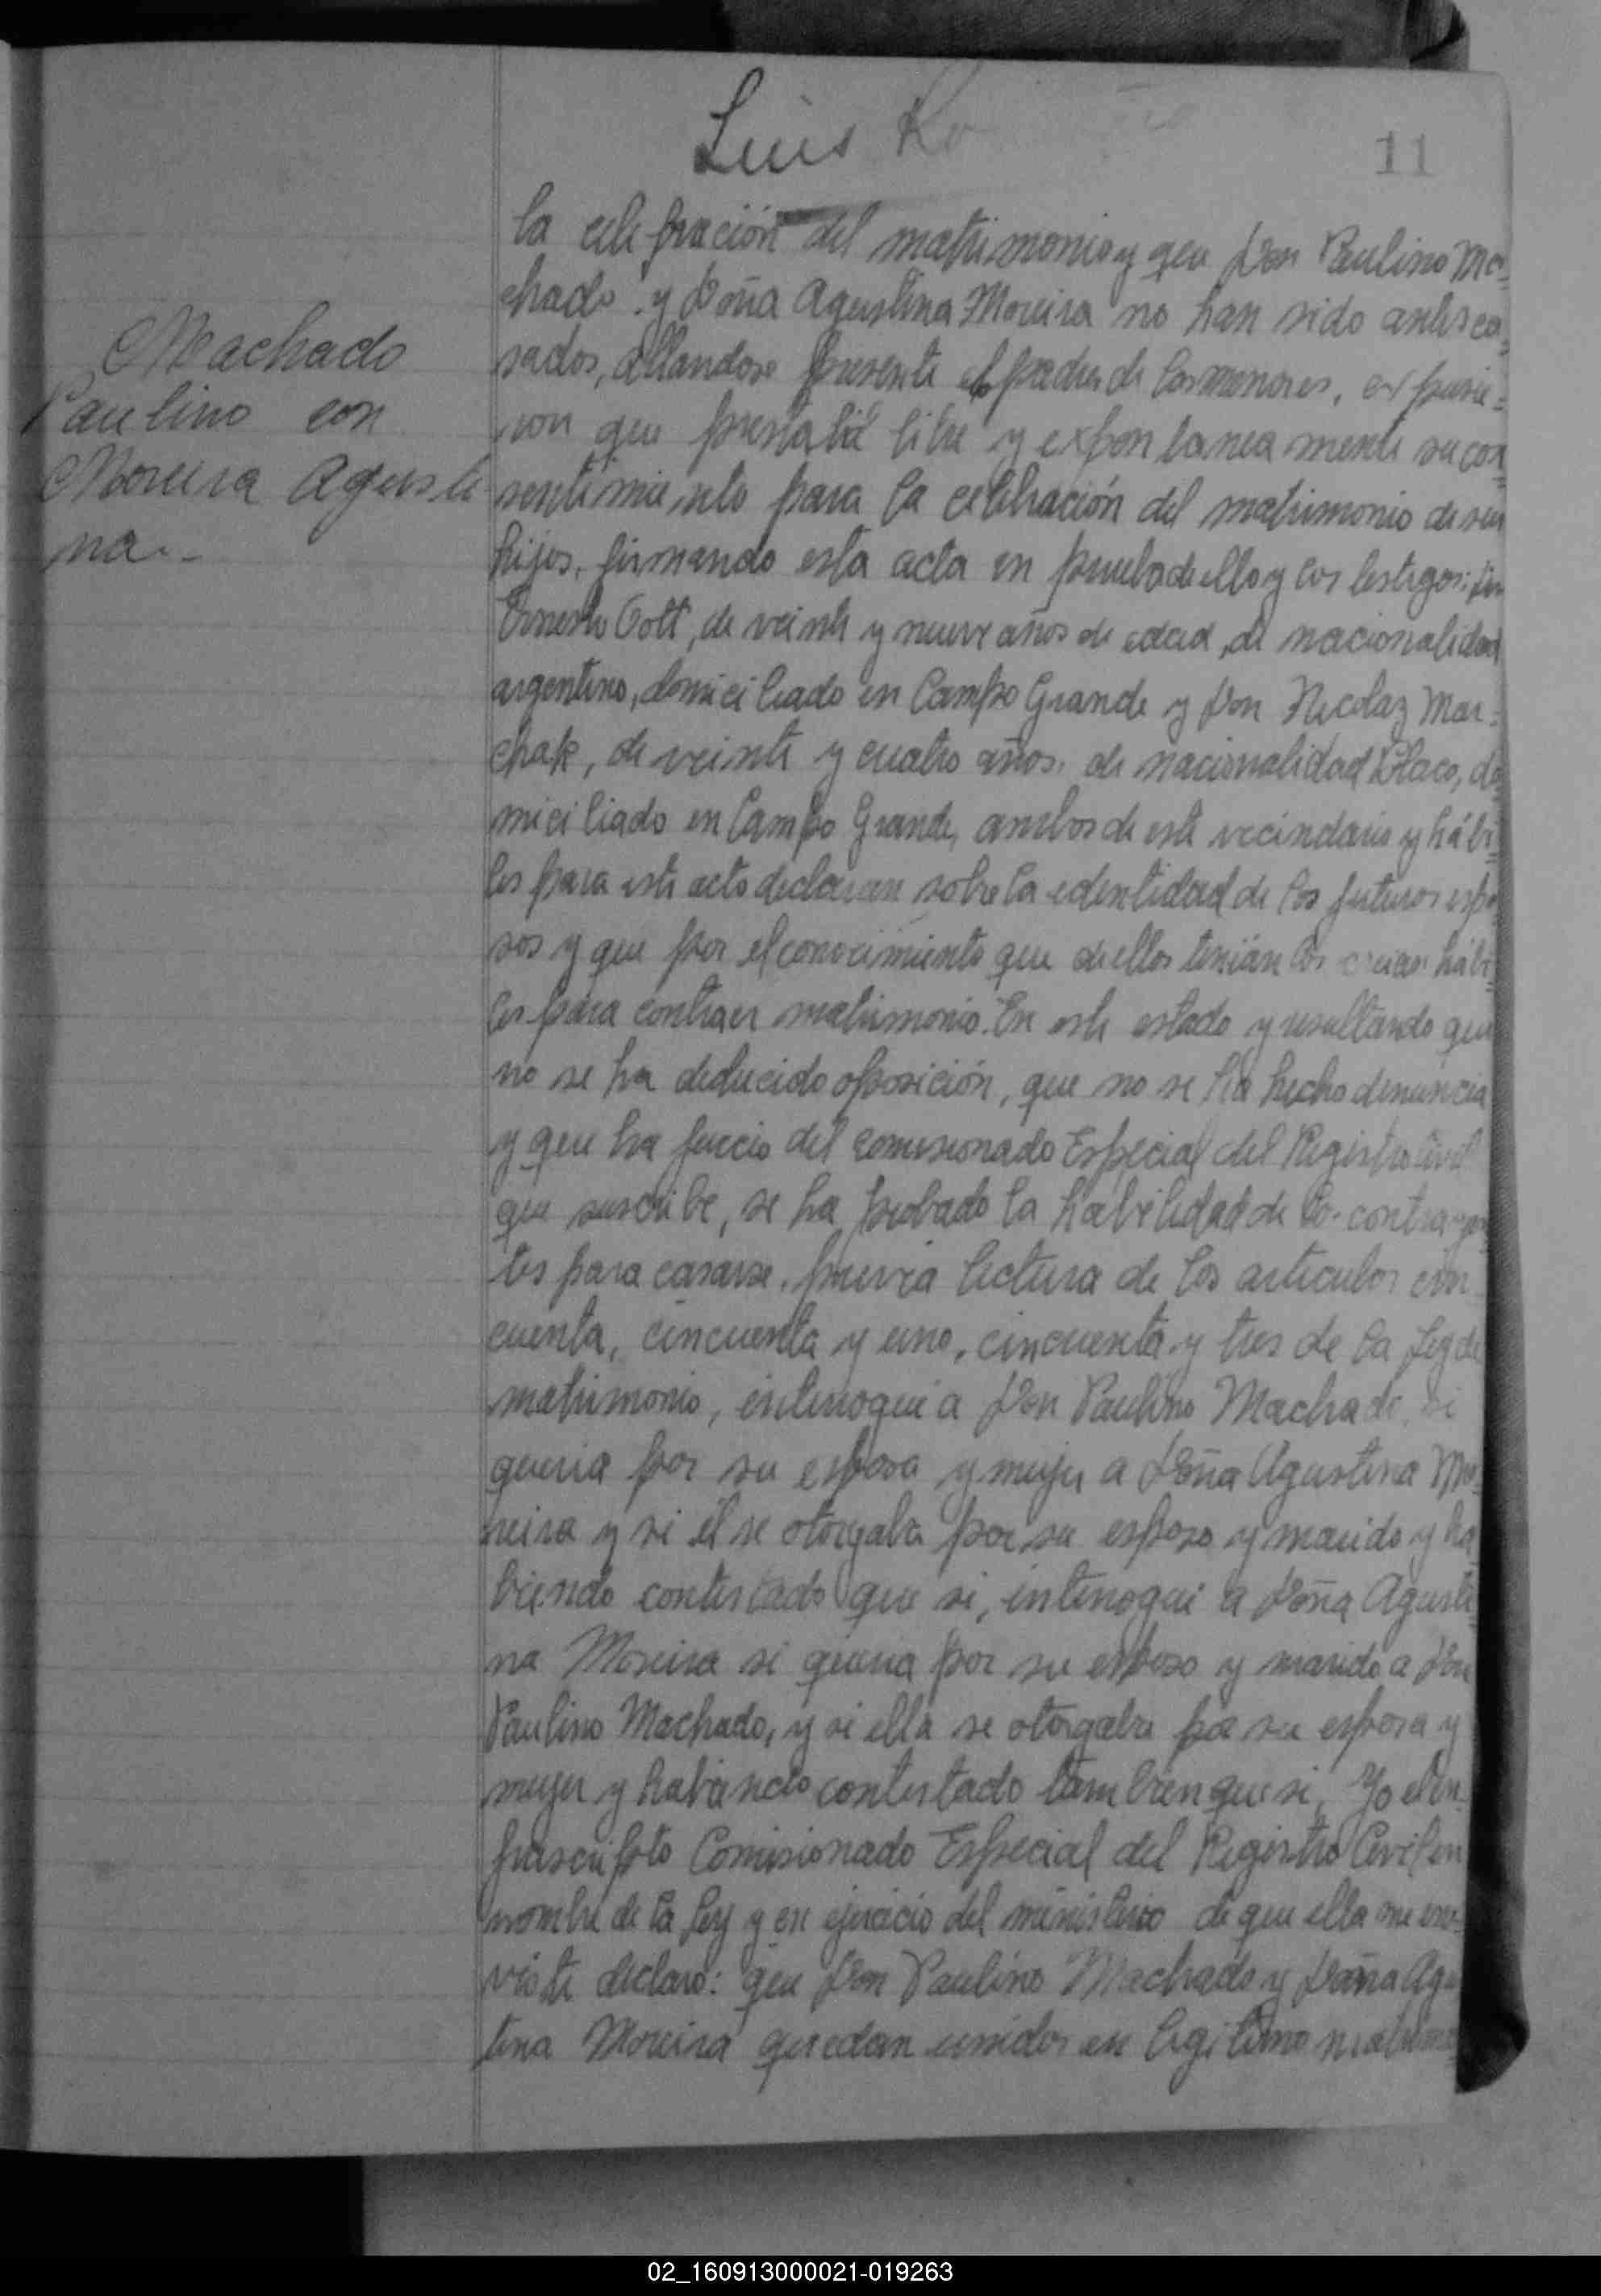 Luis
11
Machado
Paulino con
Moreira Agusti
na.-
la celebración del matrimonio y que Don Paulino Ma=
chado y Doña Agustina Moreira no han sido antes ca=
sados, allandose presente el padre de los menores, expusie=
ron que prestaba libre y expontaneamente su con=
sentimiento para la celebración del matrimonio de sus
hijos, firmando esta acta en prueba de ello y los testigos: Don
Ernesto Gott, de veinte y nueve años de edad, de nacionalidad
argentino, domiciliado en Campo Grande y Don Nicolaz Mar=
chak, de veinte y cuatro años, de nacionalidad Polaco, do
miciliado en Campo Grande, ambos de este vecindario y hábi=
les para este acto declaran sobre la edentidad de los futuros espo
sos y que por el conocimiento que de ellos tenían los creian hábi=
les para contraer matrimonio. En este estado y resultando que
no se ha deducido oposición, que no se ha hecho denuncia
y que ha juicio del comisionado Especial del Registro Civil
que suscribe, se ha probado la habilidad de los contrayen
tes para casarse, previa lectura de los articulos cin
cuenta, cincuenta y uno, cincuenta y tres de la Ley de
matrimonio, interrogué a Don Paulino Machado, si
queria por su esposa y mujer a Doña Agustina Mo=
reira y si él se otorgaba por su esposo y marido y ha
biendo contestado que si, interrogué a Doña Agusti
na Moreira si queria por su esposo y marido a Don
Paulino Machado, y si ella se otorgaba por su esposa y
mujer y habiendo contestado tambien que si, Yo el in=
frascripto Comisionado Especial del Registro Civil en
nombre de la Ley y en ejercicio del ministerio de que ella me in=
viste declaro: que Don Paulino Machado y Doña Agus
tina Moreira quedan unidos en legitimo matrimo
02_160913000021-019263